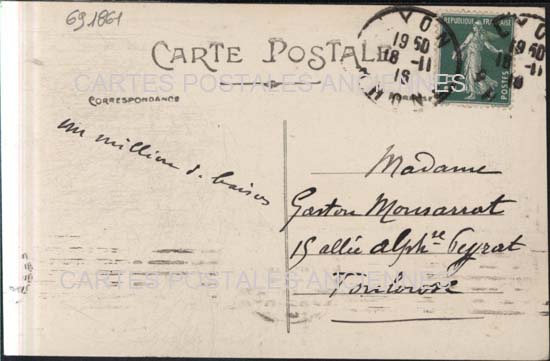 69.1861
CARTE POSTALE
CORRESPONDANCE
RÉPUBLIQUE FRANÇAISE
POSTES
LYON
19 50
18 -11
LYO
19 50
18 -11
CARTES POSTALES ANCIENNES
un million de baisers
Madame
Gaston Monsarrat
15 allée Alphse Peyrat
Toulouse
CARTES POSTALES ANCIENNES